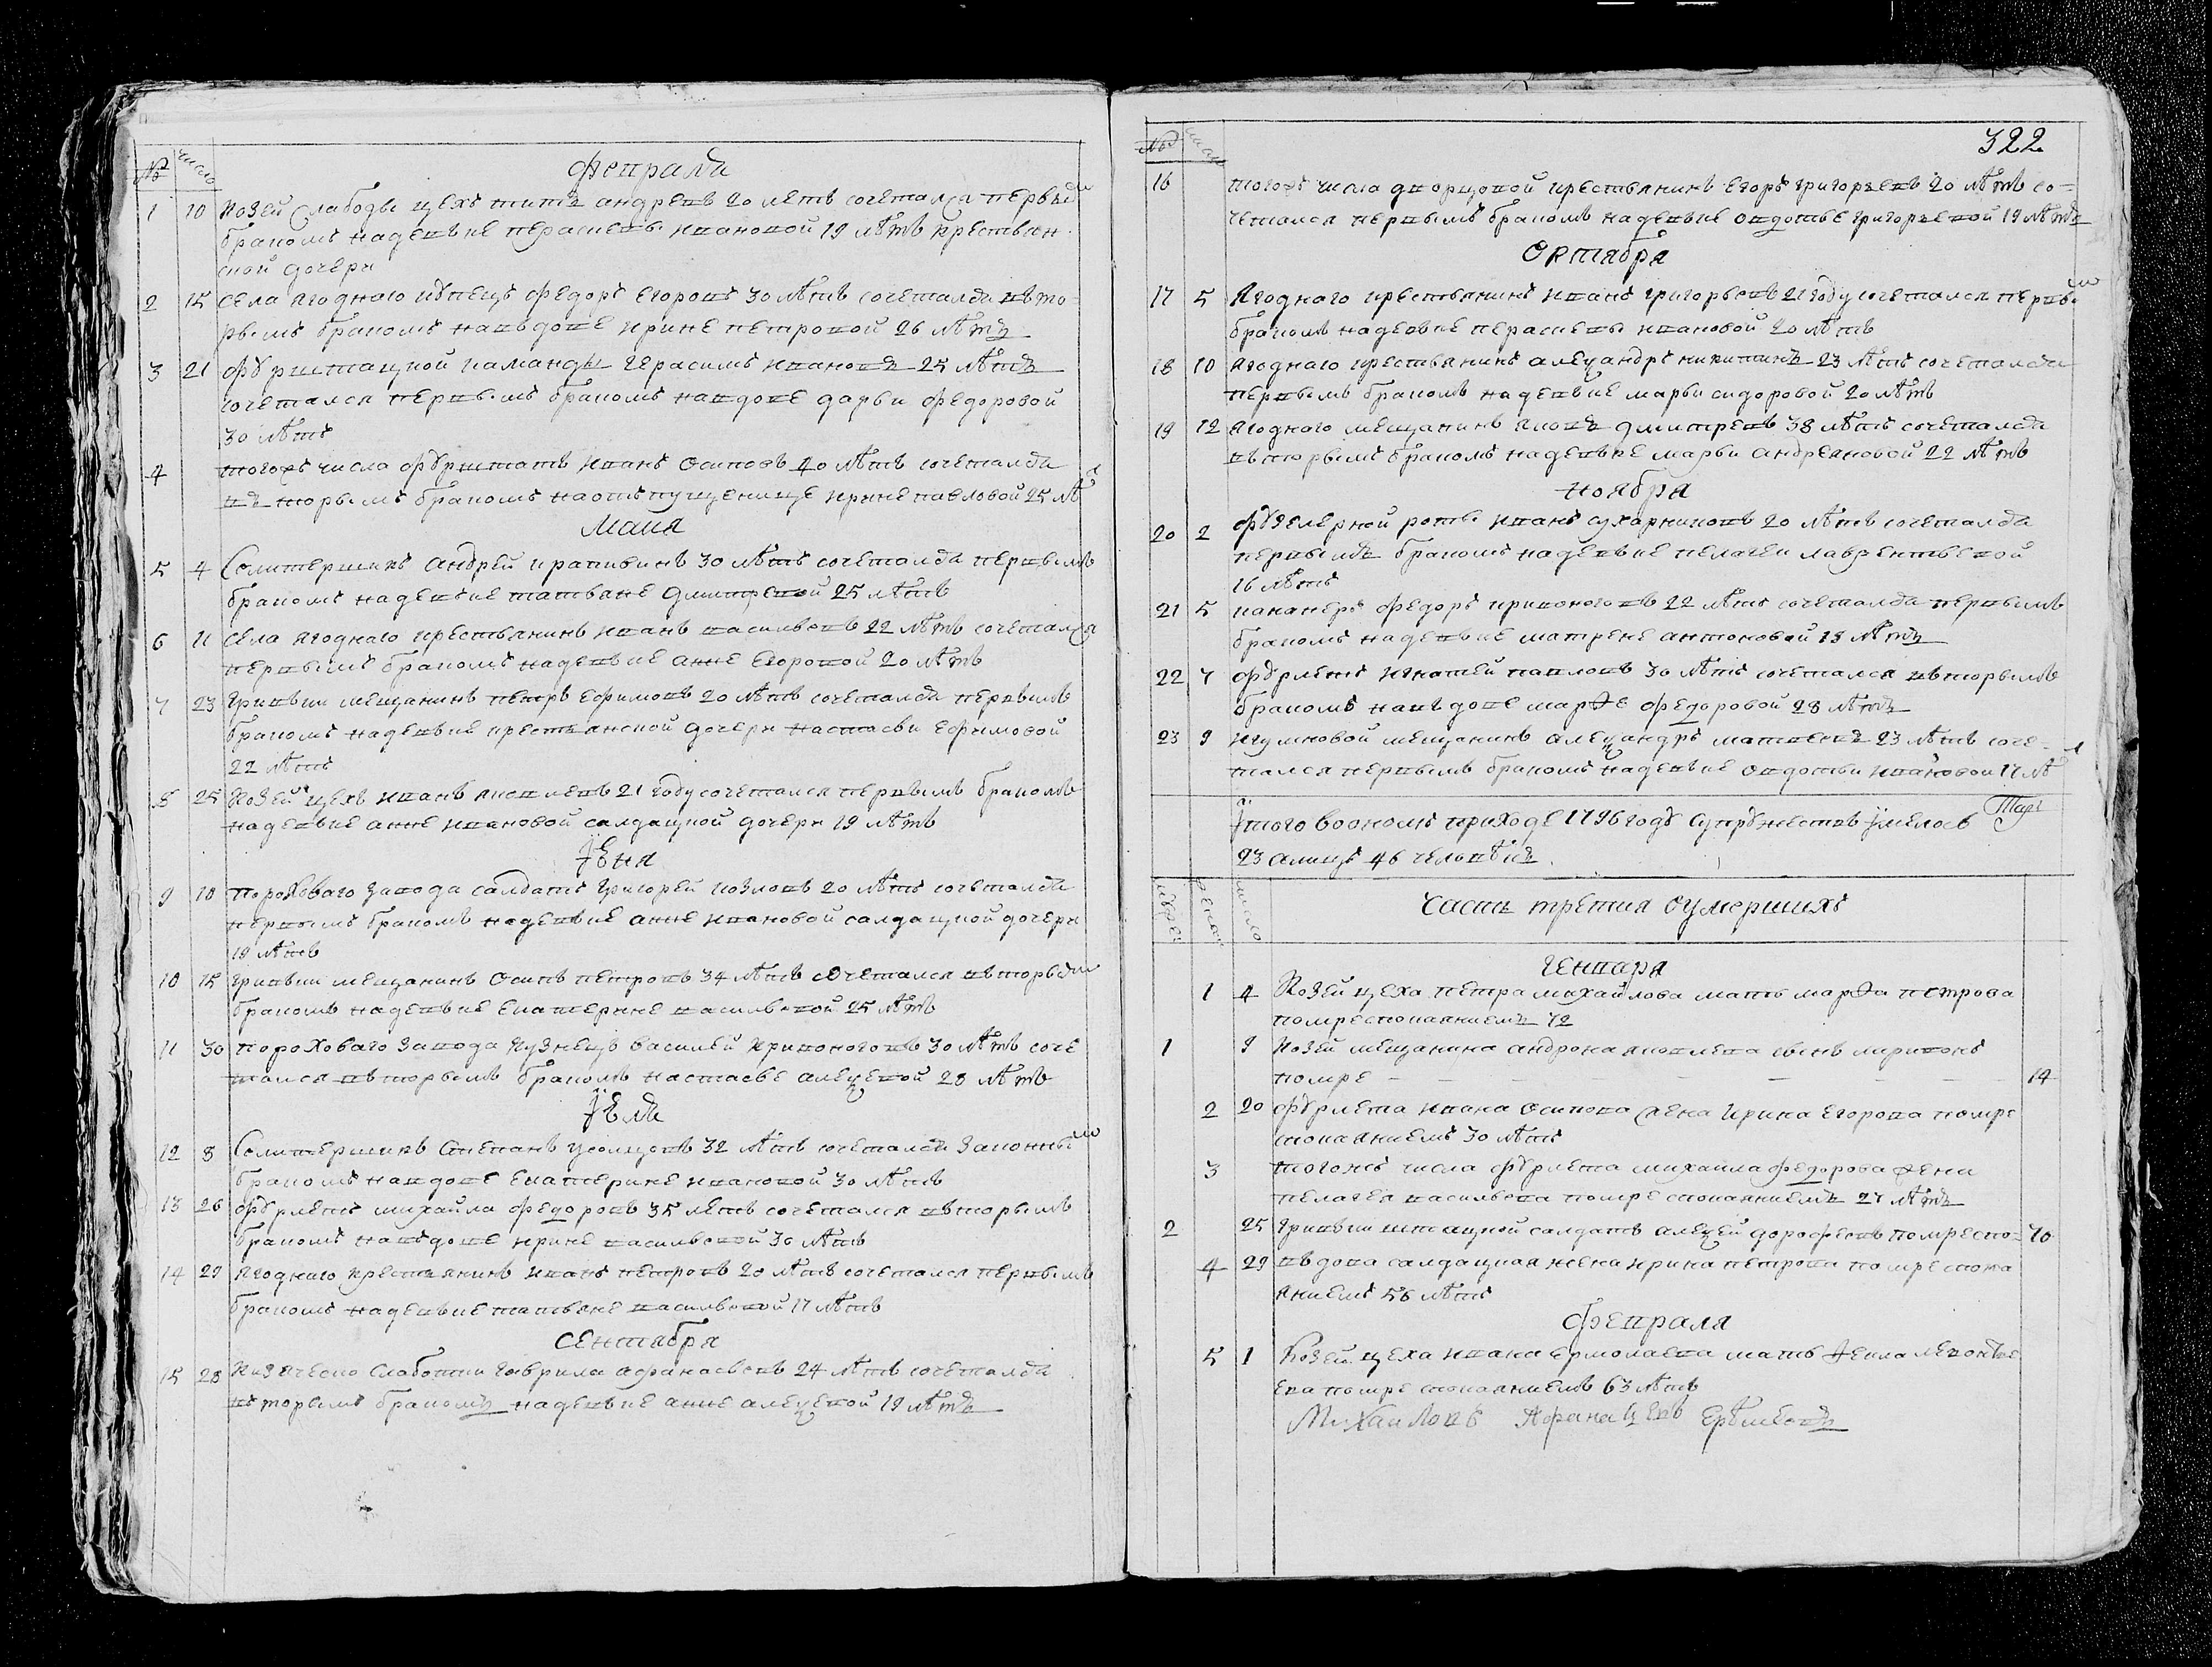 № число
февраля
1 10 Козей слабоды цехъ титъ андреевъ 20 летъ сочетался первым
бракомъ надевке перасковье ивановой 19 лѣтъ крестьян
ской дочери
2 15 села ягоднаго купецъ федоръ егоровъ 30 лѣтъ сочетался вто-
рымъ бракомъ навдове ирине петровой 26 лѣтъ
3 21 фурштацкой каманды герасимъ ивановъ 25 лѣтъ
сочетался первымъ бракомъ навдове дарьи федоровой
30 лѣтъ
4 тогожъ числа фурштатъ иванъ осиповъ 40 лѣтъ сочетался
въ торымъ бракомъ наотпущенице ирине павловой 25 лѣ
маия
5 4 Селитерщикъ андрей крапивинъ 30 лѣтъ сочетался первымъ
бракомъ надевке татьяне дмитревой 25 лѣтъ
6 11 села ягоднаго крестьянинъ иванъ васильевъ 22 лѣтъ сочетался
первымъ бракомъ надевке анне егоровой 20 лѣтъ
7 23 гривки мещанинъ петръ ефимовъ 20 лѣтъ сочетался первымъ
бракомъ надевке крестьянской дочери настасьи ефимовой
22 лѣтъ
8 25 Козей цехъ иванъ яковлевъ 21 году сочетался первымъ бракомъ
надевке анне ивановой салдацкой дочери 19 лѣтъ
іюня
9 10 пороховаго завода салдатъ григорей козловъ 20 лѣтъ сочетался
первымъ бракомъ надевке анне ивановой салдацкой дочери
19 лѣтъ
10 15 гривки мещанинъ осипъ петровъ 34 лѣтъ сочетался вторым
бракомъ надевке екатерине васильевой 25 лѣтъ
11 30 пороховаго завода кузнецъ василей кривоноговъ 30 лѣтъ соче
тался вторымъ бракомъ настасье алеѯевой 28 лѣтъ
іюля
12 8 Селитерщикъ степанъ усольцовъ 32 лѣтъ сочетался законным
бракомъ навдове екатерине ивановой 30 лѣтъ
13 26 фурлетъ михайла федоровъ 35 летъ сочетался вторымъ
бракомъ навдове ирине васильевой 30 лѣтъ
14 29 ягоднаго крестьянинъ иванъ петровъ 20 лѣтъ сочетался первымъ
бракомъ надевке татьяне васильевой 17 лѣтъ
сентября
15 28 слаботки гаврила афанасьевъ 24 лѣтъ сочетался
вторымъ бракомъ надевке анне алеѯевой 19 лѣтъ
№ число
322
16 тогожъ числа дворцовой крестьянинъ егоръ григорьевъ 20 лѣтъ со-
четался первымъ бракомъ надевке овдотье григорьевой 19 лѣтъ
октября
17 5 ягоднаго крестьянинъ иванъ григорьевъ 21 году сочетался первым
бракомъ надевке перасковье ивановой 20 лѣтъ
18 10 ягоднаго крестьянинъ алеѯандръ никитинъ 23 лѣтъ сочетался
первымъ бракомъ надевке марьи сидоровой 20 лѣтъ
19 12 ягоднаго мещанинъ яковъ дмитревъ 38 лѣтъ сочетался
въторымъ бракомъ надевке марьи андреяновой 22 лѣтъ
ноября
20 2 фузелерной роты иванъ сухарниковъ 20 лѣтъ сочетался
первымъ бракомъ надевке пелагеи лаврентьевой
16 лѣтъ
21 5 кананеръ федоръ кривоноговъ 22 лѣтъ сочетался первымъ
бракомъ надевке матрене антоновой 18 лѣтъ
22 7 фурлетъ игнатей павловъ 30 лѣтъ сочетался вторымъ
бракомъ навдове марѳе федоровой 28 лѣтъ
23 9 игумновой мещанинъ алеѯандръ матвеевъ 23 лѣтъ соче-
тался первымъ бракомъ надевке овдотьи ивановой 17 лѣ
ітого воономъ приходе 1796 году супружествъ імелось
23 алицъ 46 человѣкъ
число
часть третия оумершихъ
генваря
1 4 Козей цеха петра михайлова мать марѳа петрова
помре спокаяниемъ 72
1 9 Козей мещанина андрона яковлева сынъ мирионъ
помре — — — — — — 14
2 20 фурлета ивана осипова жена ирина егорова помре
спокаяниемъ 30 лѣтъ
3 тогожъ числа фурлета михаила федорова жена
пелагея васильева помре спокаяниемъ 27 лѣтъ
2 25 гривки штацкой салдатъ алеѯей дорофеевъ помре спо- 70
4 29 вдова салдацкая жена ирина петрова помре спока
яниемъ 56 лѣтъ
февраля
5 1 Козей цеха ивана ермолаева мать ѳекла левонтье
ева помре спокаяниемъ 63 лѣтъ
Михаиловъ Афанацевъ